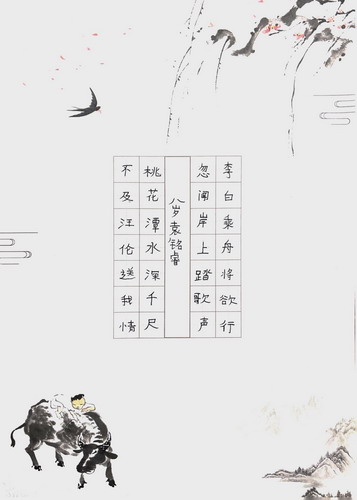 李白乘舟将欲行
忽闻岸上踏歌声
八岁袁铭睿
桃花潭水深千尺
不及汪伦送我情